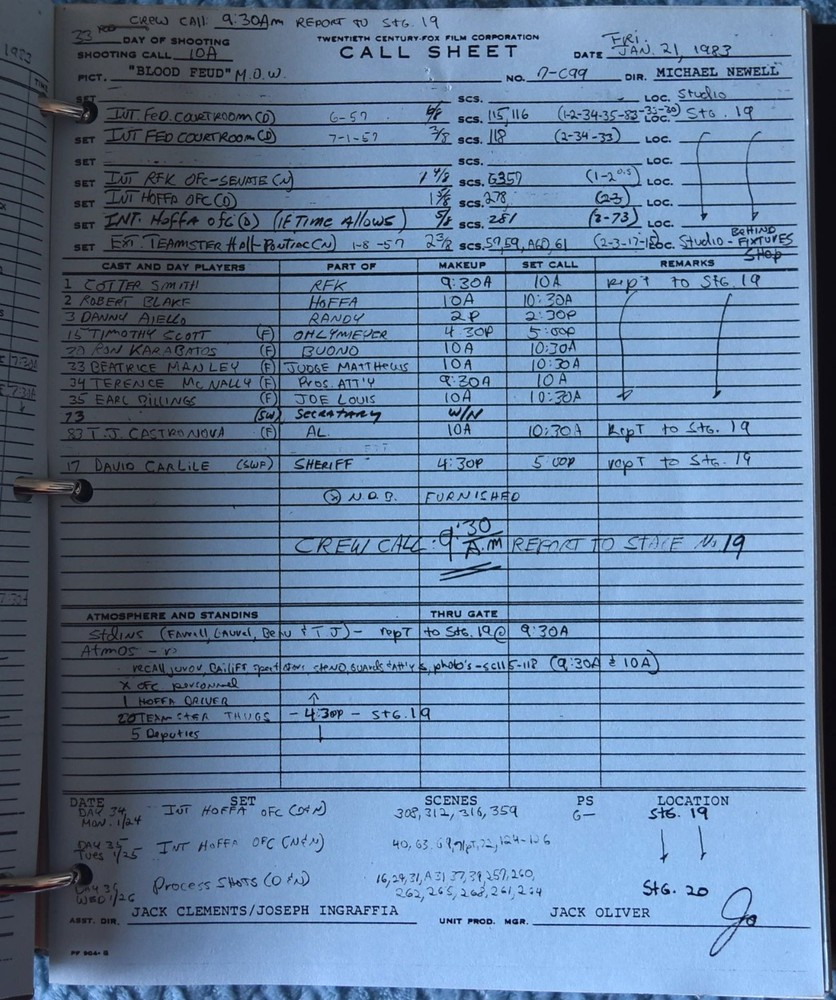 CREW CALL: 9:30AM REPORT TO STG. 19
33 RD DAY OF SHOOTING
TWENTIETH CENTURY-FOX FILM CORPORATION
SHOOTING CALL 10A
CALL SHEET
DATE FRI. JAN. 21, 1983
PICT. "BLOOD FEUD" M.O.W.
NO. 7-C99 DIR. MICHAEL NEWELL
SET SCS. LOC. Studio
INT FED COURTROOM (D) 6-57 SCS. 115, 116 LOC. STG. 19
SET INT FED COURTROOM (D) 7-1-57 3/8 SCS. 118 (2-34-33) LOC.
SET SCS. LOC.
SET INT RFK OFC-SENATE (N) SCS. G357 LOC.
SET INT HOFFA OFC (D) SCS. 278 (2-3) LOC.
SET INT. Hoffa OFC (D) (IF TIME ALLOWS) 5/8 SCS. 281 (2-73) LOC.
SET EXT. TEAMSTER Hall-PONTIAC (N) 1-8-57 SCS. 57, 59, A60, 61 LOC. Studio - BEHIND FIXTURES Shop
CAST AND DAY PLAYERS PART OF MAKEUP SET CALL REMARKS
1 COTTER SMITH RFK 9:30A 10A rept to STG. 19
2 ROBERT BLAKE HOFFA 10A 10:30A
3 DANNY AIELLO RANDY 2P 2:30P
15 TIMOTHY SCOTT (F) OHLYMEYER 4:30P 5:00P
RON KARABATSOS (F) BUONO 10A 10:30A
33 BEATRICE MANLEY (F) JUDGE MATTHEWS 10A 10:30A
34 TERENCE McNALLY (F) PROS. ATT'Y 9:30A 10A
35 EARL BILLINGS (F) JOE LOUIS 10A 10:30A
73 (SW) SECRETARY W/N
83 T.J. CASTRONOVA (F) AL. 10A 10:30A Rept to STG. 19
17 DAVID CARLILE (SWF) SHERIFF 4:30P 5:00P rept to STG. 19
N.D.B. FURNISHED
CREW CALL: 9:30 A.M REPORT TO STAGE No 19
ATMOSPHERE AND STANDINS THRU GATE
Stdins (Farrell, Laurel, Beau & TJ) - rept to STG. 19 @ 9:30A
Atmos -
recall juror, Bailiff, spectators, steno, guards, Att'ys, photo's - sc 115-118 (9:30A & 10A)
X OFC personnel
1 HOFFA DRIVER
20 TEAMSTER THUGS - 4:30P - STG. 19
5 Deputies
DATE SET SCENES PS LOCATION
DAY 34 MON. 1/24 INT HOFFA OFC (D&N) 308, 312, 316, 359 STG. 19
DAY 35 TUES 1/25 INT HOFFA OFC (N&N)
WED 1/26 PROCESS SHOTS (D&N) STG. 20
ASST. DIR. JACK CLEMENTS/JOSEPH INGRAFFIA UNIT PROD. MGR. JACK OLIVER
PF 904-G